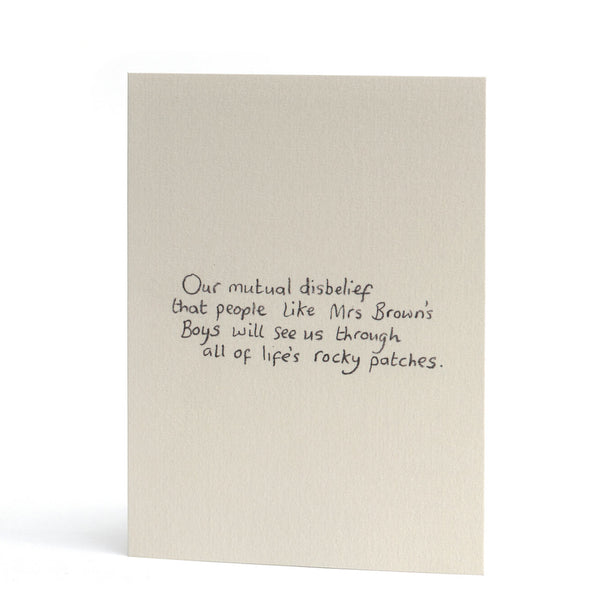 Our mutual disbelief
that people like Mrs Brown's
Boys will see us through
all of life's rocky patches.